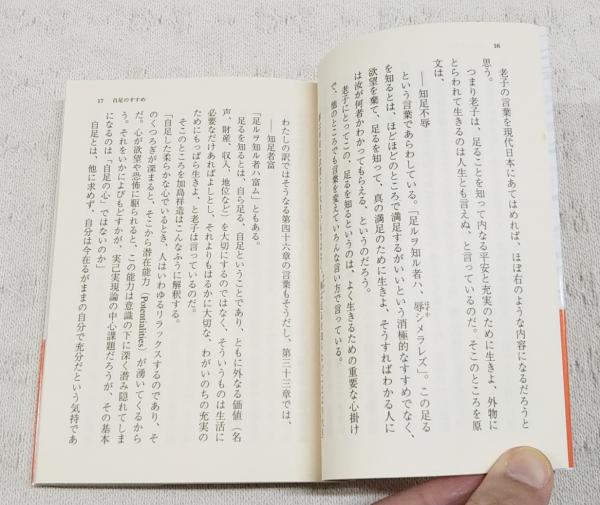 16
老子の言葉を現代日本にあてはめれば、ほぼ右のような内容になるだろうと
思う。
つまり老子は、足ることを知って内なる平安と充実のために生きよ、外物に
とらわれて生きるのは人生とも言えぬ、と言っているのだ。そこのところを原
文は、
――知足不辱
という言葉であらわしている。「足ルヲ知ル者ハ、辱シメラレズ」。この足る
はずか
を知るとは、ほどほどのところで満足するがいいという消極的なすすめでなく、
欲望を棄て、足るを知って、真の満足のために生きよ、そうすればわかる人に
は汝が何者かわかってもらえる、というのだろう。
老子にとってこの、足るを知るというのは、よく生きるための重要な心掛け
で、他のところでも言葉を変えていろんな言い方で言っている。
17 自足のすすめ
わたしの訳ではそうなる第四十六章の言葉もそうだし、第三十三章では、
――知足者富
「足ルヲ知ル者ハ富ム」ともある。
足るを知るとは、自ら足る、自足ということであり、ともに外なる価値（名
声、財産、収入、地位など）を大切にするのではなく、そういうものは生活に
必要なだけあればよしとし、それよりもはるかに大切な、わがいのちの充実の
ためにもっぱら生きよ、と老子は言っているのだ。
そこのところを加島祥造はこんなふうに解釈する。
「自足した柔らかな心でいるとき、人はいわゆるリラックスするのであり、そ
のくつろぎが深まると、そこから潜在能力（Potentialities）が湧いてくるから
だ。心が欲望や恐怖に駆られると、この能力は意識の下に深く潜み隠れてしま
う。それをいかによびもどすかが、実己実現論の中心課題だろうが、その基本
になるのは「自足の心」ではないのか」
自足とは、他に求めず、自分は今在るがままの自分で充分だという気持であ